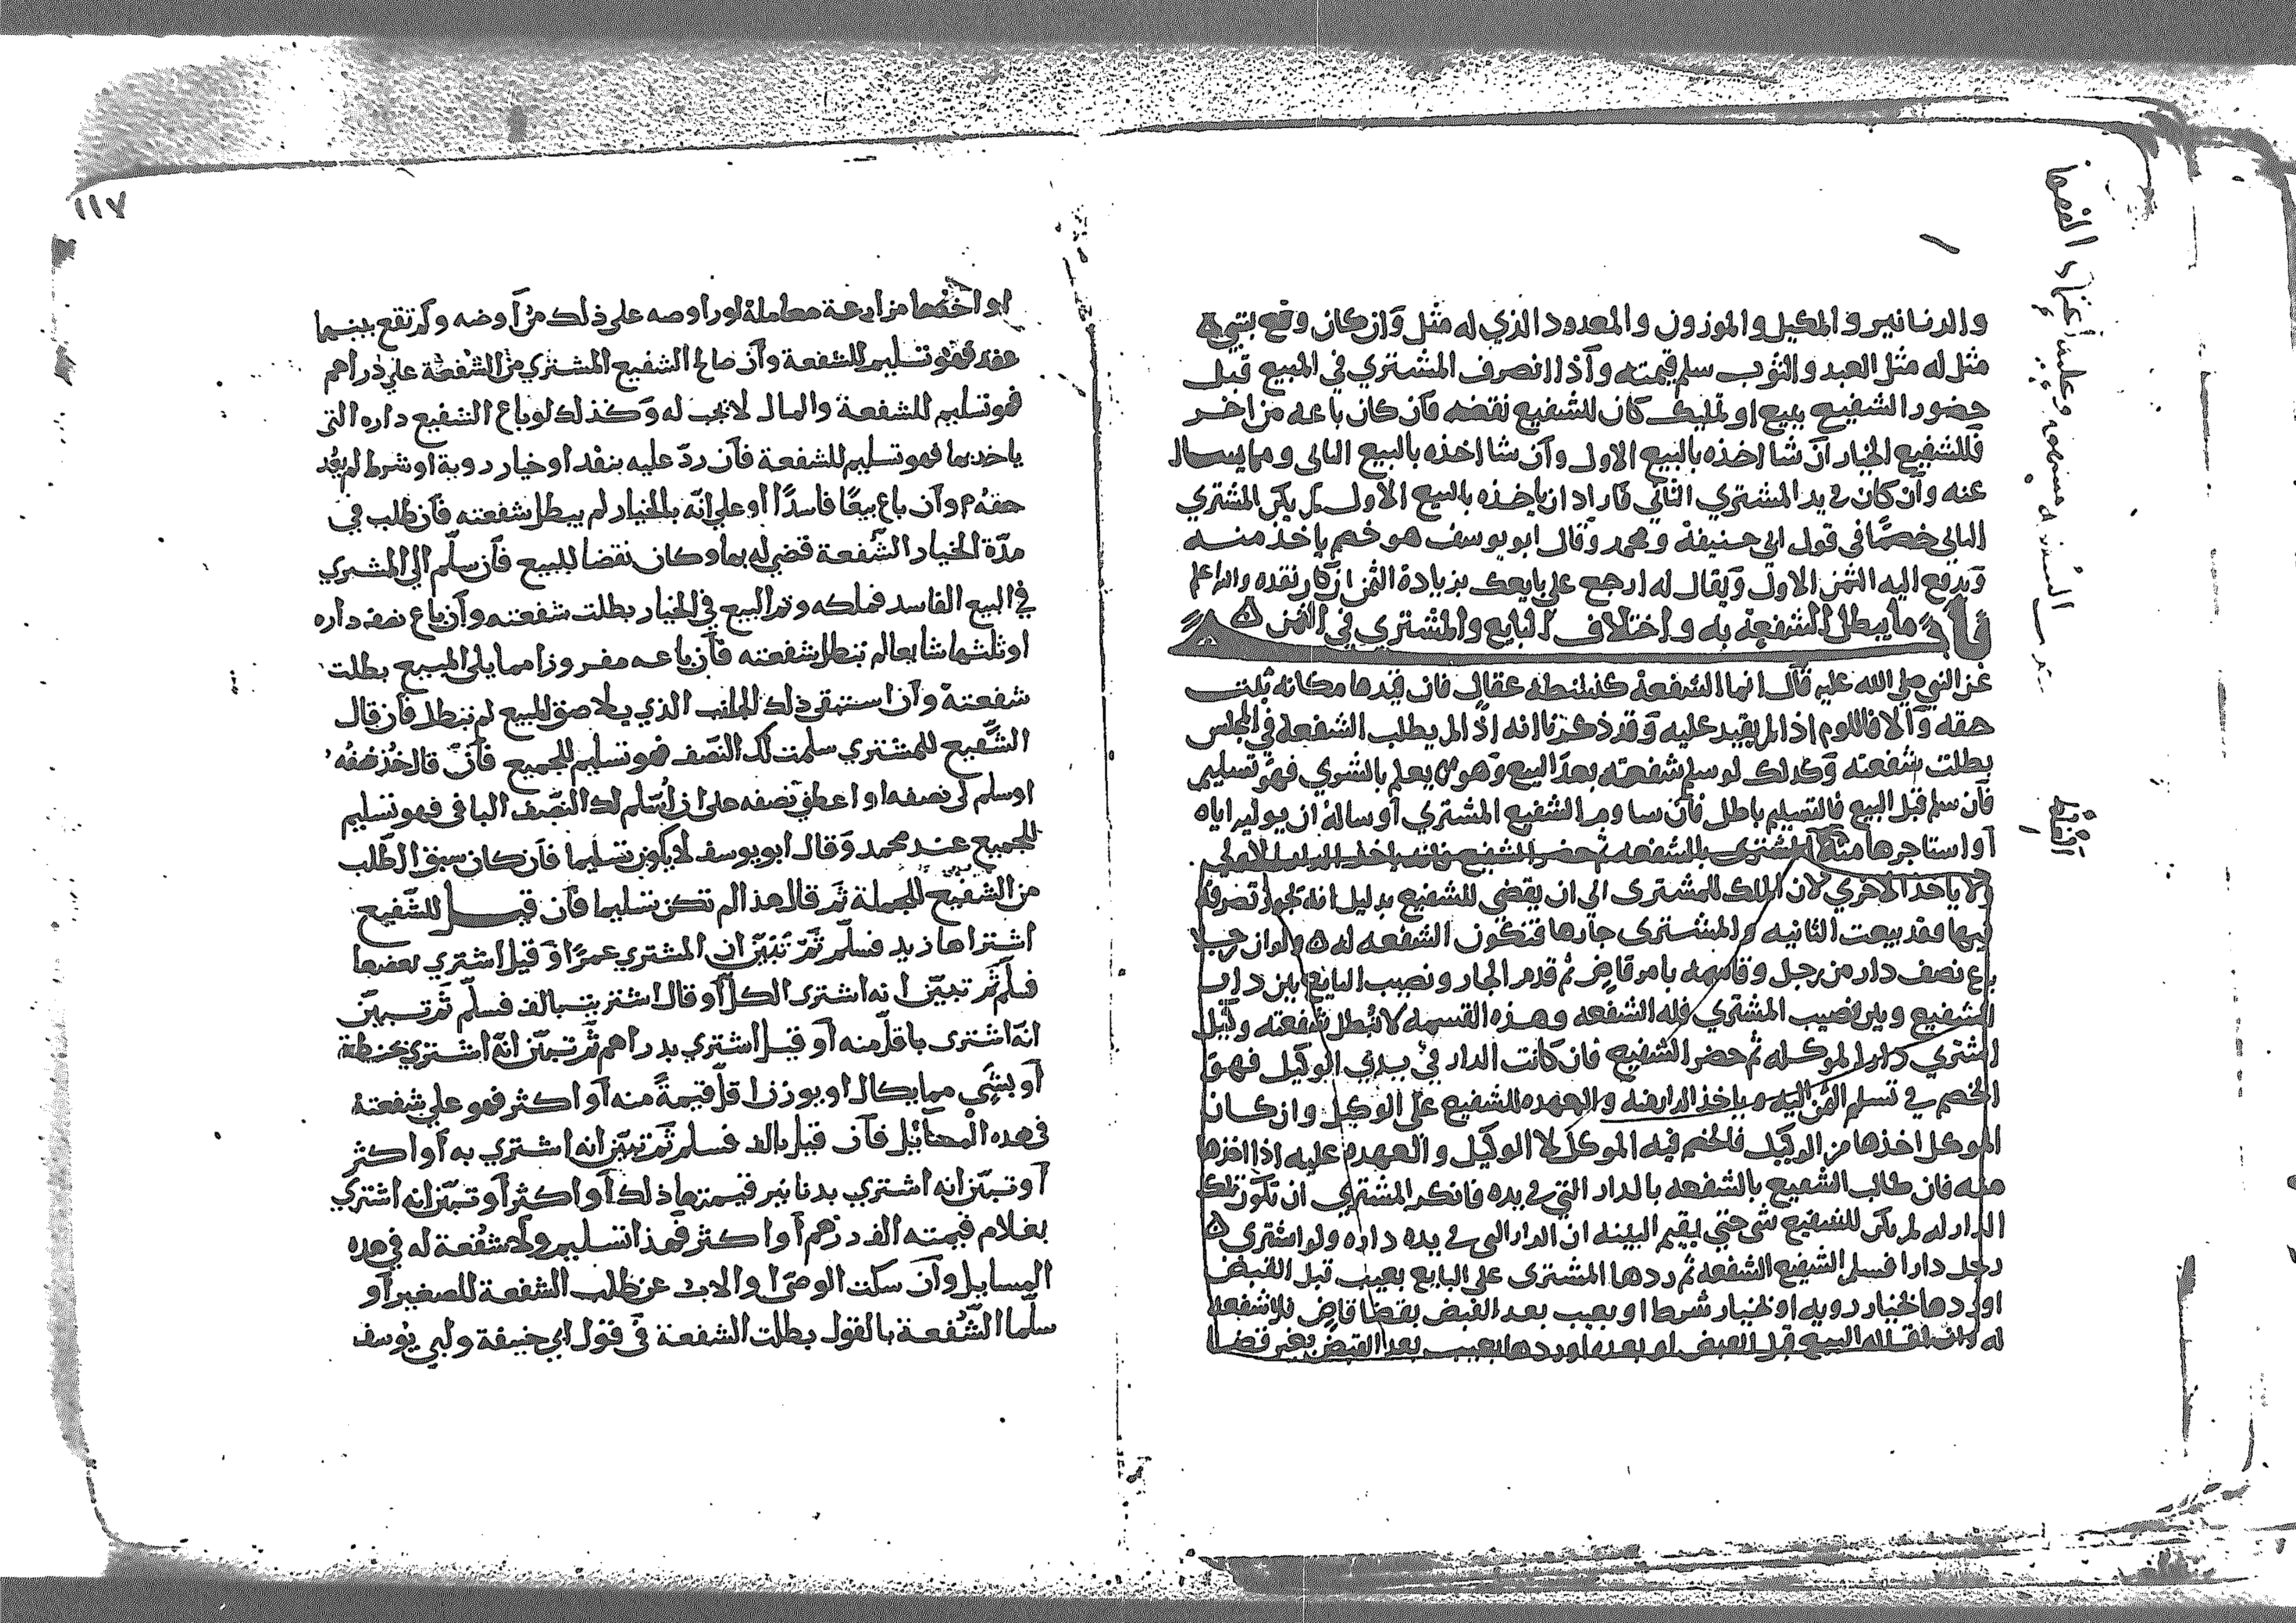 والدنانير والمكيل والموزون والمعدود الذي له مثل وان كان وقع بشي
مثل له مثل العبد والثوب سلم قيمته واذا انصرف المشتري في المبيع قبل
حضور الشفيع ببيع او تمليك كان للشفيع نقضه فان كان باعه من اخر
فللشفيع الخيار ان شا اخذه بالبيع الاول وان شا اخذه بالبيع الثاني
عنه وان كان في يد المشتري الثاني فاراد ان ياخذه بالبيع الاول لم يكن المشتري
الثاني خصمًا في قول ابي حنيفة ومحمد وقال ابو يوسف هو خصم ياخذ منه
ويدفع اليه الثمن الاول ويقال له ارجع على بايعك بزيادة الثمن ان كان نقده والله اعلم
ما يبطل الشفعة به واختلاف البايع والمشتري في الثمن
عن النبي صلى الله عليه قال انما الشفعة كنشطة عقال فان قيدها مكانه ثبت
حقه والا فاللوم اذا لم يقيد عليه وقد ذكرنا انه اذا لم يطلب الشفعة في المجلس
بطلت شفعته وكذلك لو سلم شفعته بعد البيع وهو لم يعلم بالشري فهو تسليم
فان سلم قبل البيع فالتسليم باطل فان ساوم الشفيع المشتري او ساله ان يوليه اياه
او استاجرها منه المشتري بالشفعه ثم حضر الشفيع
ولا ياخذ الاخري لان الملك للمشترى الى ان يقضى للشفيع بدليل انه يجوز تصرفه
فيها فقد بيعت الثانيه والمشترى جارها فتكون الشفعه له ولو ان رجلا
باع نصف دار من رجل وقاسمه بامر قاض ثم قدم الجار ونصيب البايع بين دار
الشفيع وبين نصيب المشتري فله الشفعه وهذه القسمه لا تبطل شفعته وكيل
اشتري دارا لموكله ثم حضر الشفيع فان كانت الدار في يدي الوكيل فهو
الخصم في تسلم الثمن اليه وياخذ الدار منه والعهده للشفيع على الوكيل وان كان
الموكل اخذها من الوكيل فالخصم فيه الموكل لا الوكيل والعهده عليه اذا اخذها
منه فان طالب الشفيع بالشفعه بالدار التي في يده فانكر المشتري ان تكون تلك
الدار له لم يكن للشفيع شي حتى يقيم البينه ان الدار التي في يده داره ولو اشترى
رجل دارا فسلم الشفيع الشفعه ثم ردها المشترى على البايع بعيب قبل القبض
او ردها بخيار رويه او بخيار شرط او بعيب بعد القبض بقضا قاض فلا شفعه
له وان اقاله البيع قبل القبض او بعده او ردها بعيب بعد القبض بغير قضا
١١٧
او اخذها مزارعة معاملة او راوصه على ذلك من اوضه ولم تقع بينهما
عقد فهو تسليم للشفعة وان صالح الشفيع المشتري من الشفعة على دراهم
فهو تسليم للشفعة والمال لا يجب له وكذلك لو باع الشفيع داره التى
ياخد بها فهو تسليم للشفعة فان ردّ عليه بنقد او خيار روية او شرط لم يعد
حقه وان باع بيعًا فاسدًا او على انه بالخيار لم يبطل شفعته فان طلب في
مدّة الخيار الشفعة قضي له بها وكان نقضا للبيع فان سلّم الى المشتري
في البيع الفاسد فملكه وتم البيع في الخيار بطلت شفعته وان باع نصف داره
او ثلثها شايعا لم تبطل شفعته فان باعه مفروزا مما يلي المبيع بطلت
شفعته وان استبقى ذلك الجانب الذي يلاصق المبيع لم تبطل فان قال
الشفيع للمشتري سلمت لك النصف فهو تسليم للجميع فان قال خذ نصفه
او سلم لي نصفه او اعطني نصفه على ان اسلم لك النصف الباقي فهو تسليم
للجميع عند محمد وقال ابو يوسف لا يكون تسليما فان كان سبق الطلب
من الشفيع للجملة ثم قال هذا لم تكن تسليما فان قيل للشفيع
اشتراها زيد فسلّم ثم تبيّن ان المشتري عمرًا او قيل اشتري بعضها
فسلم ثم تبيّن انه اشترى الكل او قال اشتريت بالف فسلّم ثم تبين
انه اشترى باقل منه او قيل اشتري بدراهم ثم تبين انه اشتري بحنطة
او بشي مما يكال او يوزن اقل قيمةً منه او اكثر فهو على شفعته
في هده المسائل فان قيل بالف فسلم ثم تبين انه اشتري به او اكثر
او تبين انه اشتري بدنانير قيمتها ذلك او اكثر او تبين انه اشتري
بغلام قيمته الف درهم او اكثر فهذا تسليم ولا شفعة له في هده
المسايل وان سكت الوصى او الاب عن طلب الشفعة للصغير او
سلّما الشفعة بالقول بطلت الشفعة في قول ابي حنيفة وابي يوسف